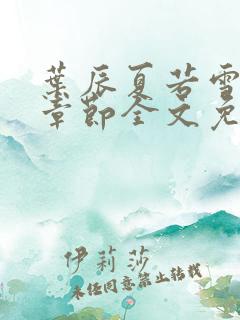 葉辰夏若雪
章節全文免
伊莉莎
未经同意禁止转载